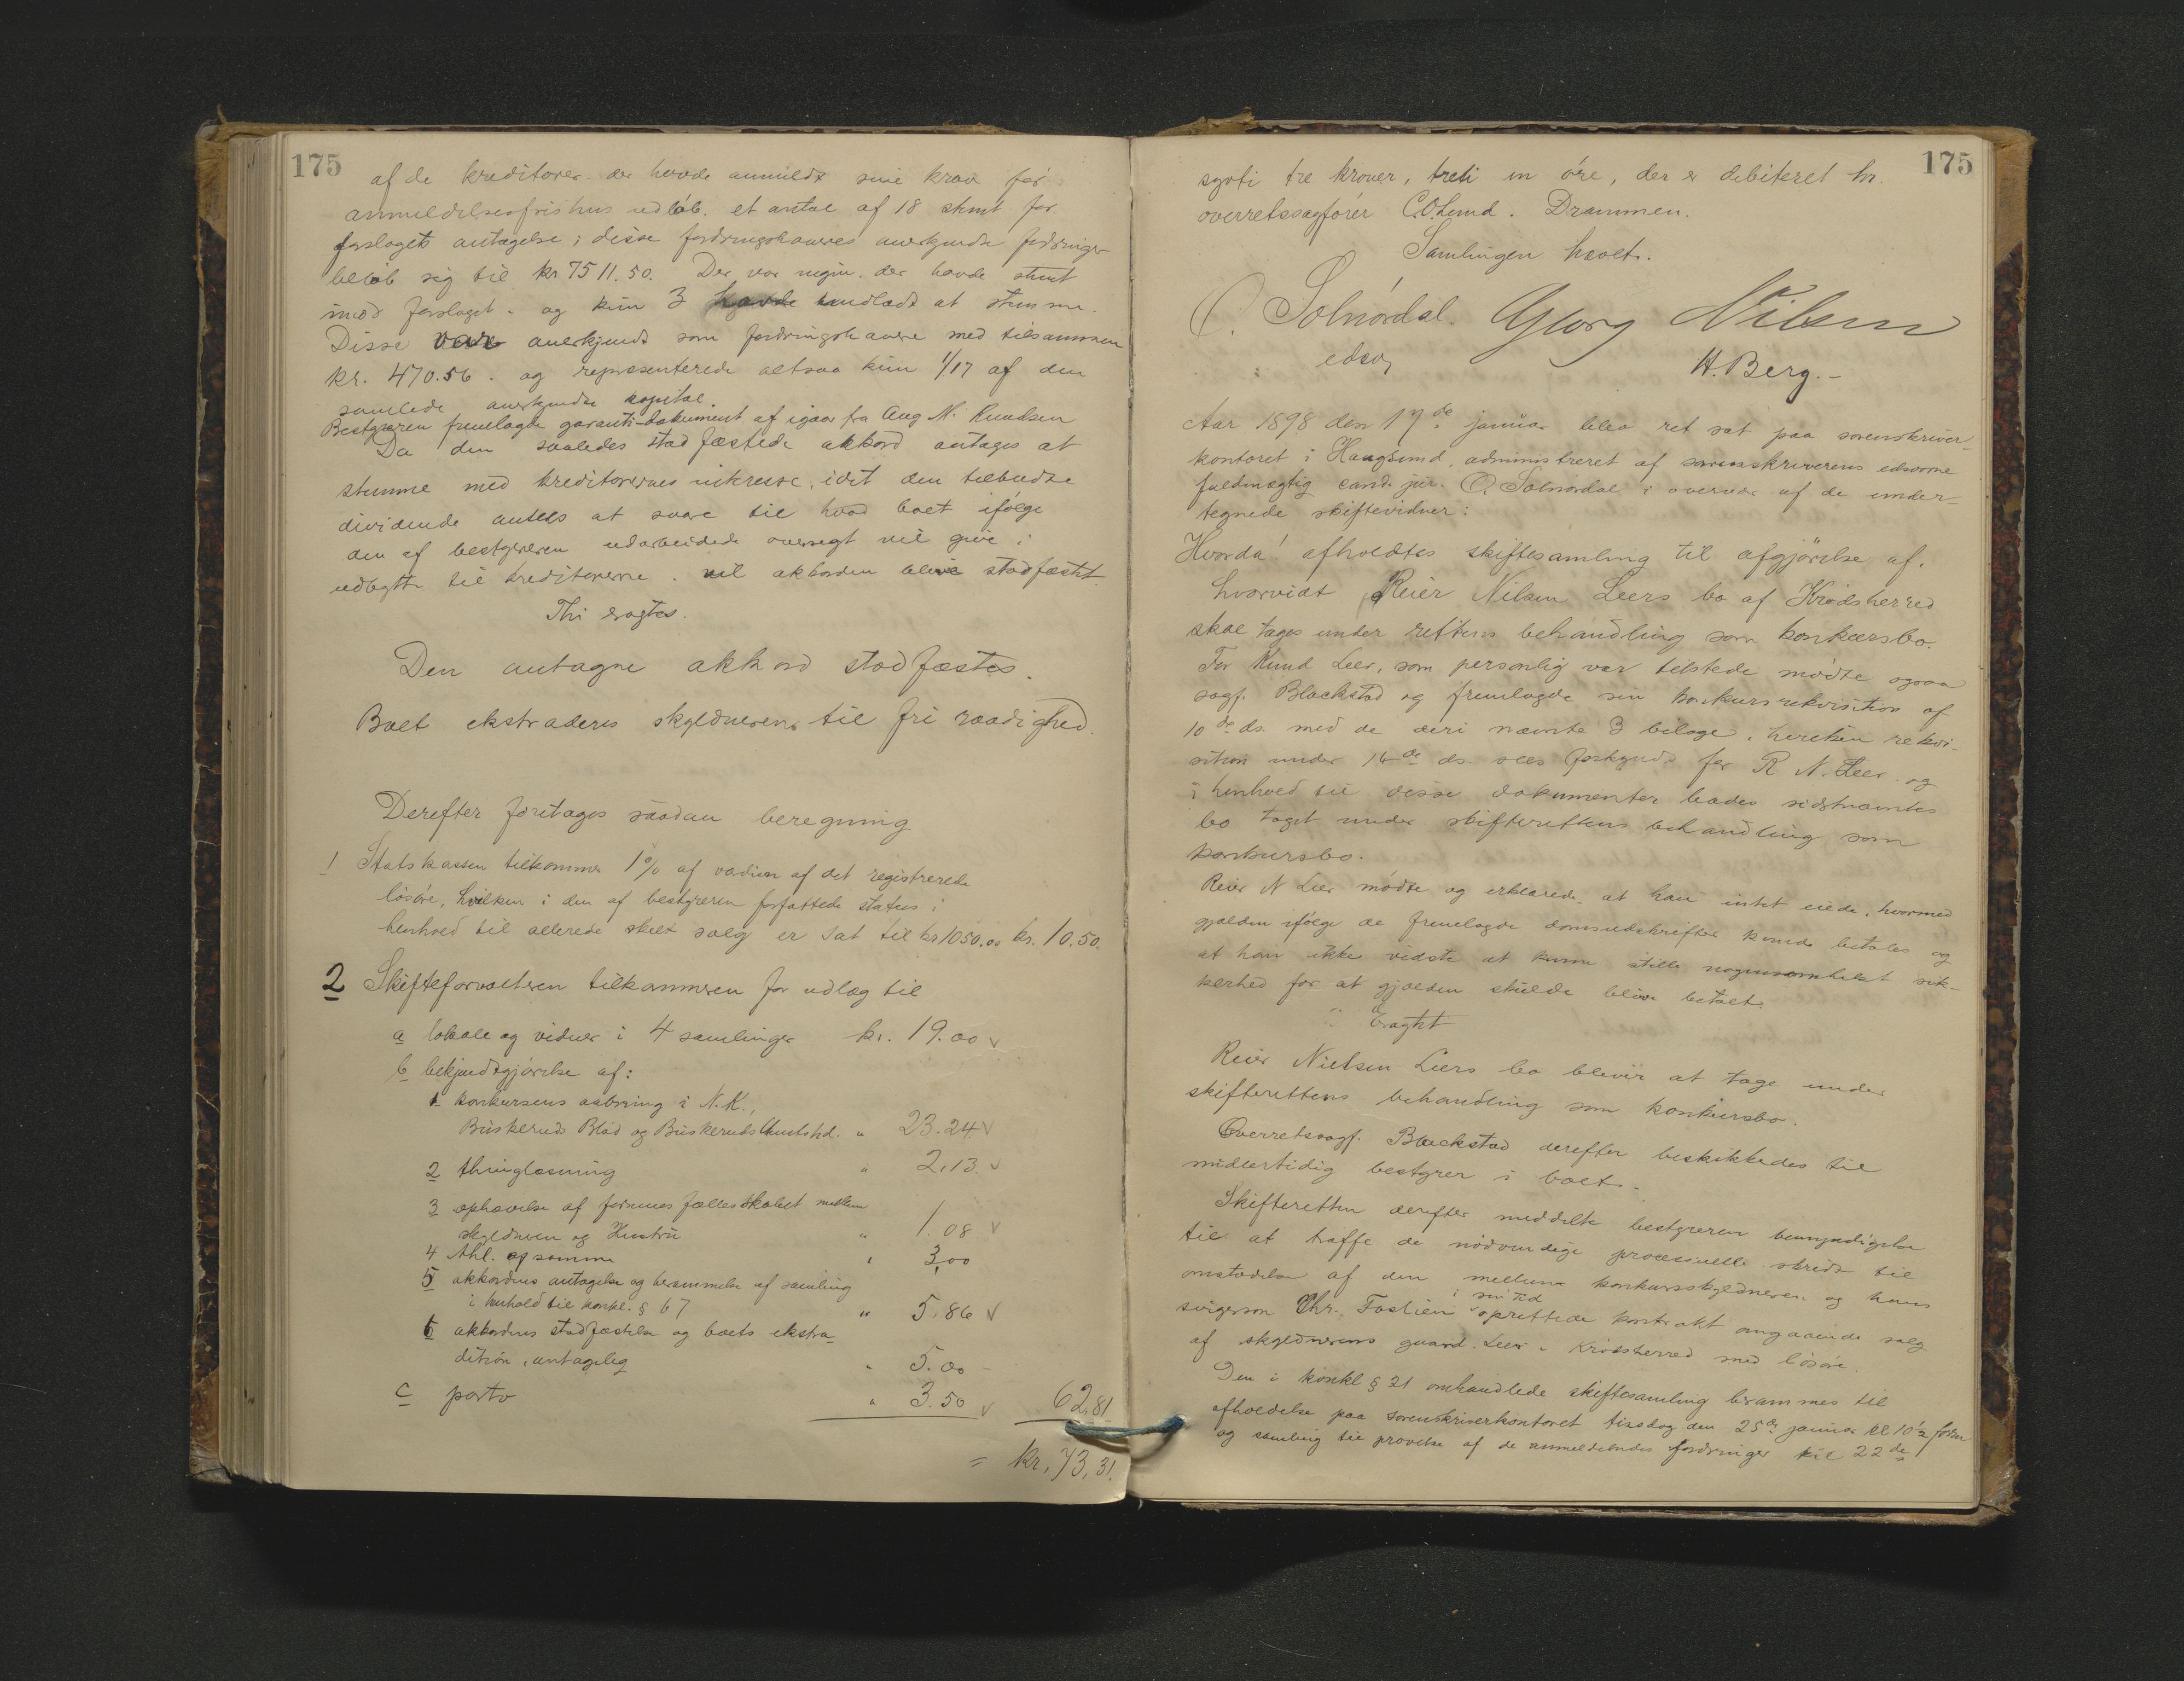 175
af de kreditorer der havde anmeldt sine krav før
anmeldelsesfristens udløb. et antal af 18 stemt for
forslagets antagelse; disse fordringshaveres anerkjendte fordringer
beløb sig til kr 7511.50. Der var ingen der havde stemt
imod forslaget og kun 3 havde undladt at stemme.
Disse var anerkjendt som fordringshavere med tilsammen
kr. 470.56. og repræsenterede altsaa kun 1/17 af den
samlede anerkjendte kapital.
Bestyreren fremlagde garanti-dokument af igaar fra Aug N. Knudsen
Da den saaledes stadfæstede akkord antages at
stemme med kreditorernes interesse, idet den tilbudte
dividende antages at svare til hvad boet ifølge
den af bestyreren udarbeidede oversigt vil give i
udbytte til kreditorerne. vil akkorden blive stadfæstet.
Thi eragtes.
Den antagne akkord stadfæstes.
Boet ekstraderes skyldneren til fri raadighed.
Derefter foretages saadan beregning
1 Statskassen tilkommer 1% af værdien af det registrerede
løsøre, hvilken i den af bestyreren forfattede status i
henhold til allerede skeet salg er sat til kr 1050.00 kr. 10.50.
2 Skifteforvalteren tilkommer for udlæg til
a lokale og vidner i 4 samlinger kr. 19.00 v
b bekjendtgjørelse af:
1 konkursens aabning i N.K.,
Buskeruds Blad og Buskeruds Amtstid. " 23.24 v
2 thinglæsning " 2.13. v
3 ophævelse af formuesfællesskabet mellem
skyldneren og Hustru " 1.08 v
4 thl. af samme " 3,00
5 akkordens antagelse og berammelse af samling
i henhold til konkl. § 67 " 5.86 v
6 akkordens stadfæstelse og boets ekstra-
dition, antagelig " 5.00 -
c porto " 3.50 v 62,81
= kr. 73,31.
175
sytti tre kroner, treti en øre, der er debiteret hr.
overretssagfører C.O. Lund. Drammen.
Samlingen hævet.
O. Solnørdal. Georg Nilsen
edsv. H. Berg.-
Aar 1898 den 17de januar blev ret sat paa sorenskriver-
kontoret i Haugsund, administreret af sorenskriverens edsvorne
fuldmægtig cand. jur. O. Solnørdal i overvær af de under-
tegnede skiftevidner:
Hvorda! afholdtes skiftesamling til afgjørelse af,
hvorvidt Reier Nilsen Leers bo af Krødsherred
skal tages under rettens behandling som konkursbo.
For Knud Leer, som personlig var tilstede mødte ogsaa
sagf. Blackstad og fremlagde sin konkursrekvisition af
10de ds. med de deri nævnte 3 bilage, hvilken rekvi-
sition under 14de ds. sees forkyndt for R. N. Leer. og
i henhold til disse dokumenter bades sidstnævntes
bo taget under skifterettens behandling som
konkursbo.
Reier N Leer mødte og erklærede at han intet eiede, hvormed
gjælden ifølge de fremlagde domsudskrifter kunde betales og
at han ikke vidste at kunne stille nogensomhelst sik-
kerhed for at gjælden skulde blive betalt.
Eragtet
Reier Nielsen Leers bo bliver at tage under
skifterettens behandling som konkursbo.
Overretssagf. Blackstad derefter beskikkedes til
midlertidig bestyrer i boet.
Skifteretten derefter meddelte bestyreren bemyndigelse
til at træffe de nødvendige processuelle skridt til
omstødelse af den mellem konkursskyldneren og hans
svigersøn Chr. Foslien i sin tid oprettede kontrakt angaaende salg
af skyldnerens gaard Leer i Krødsherred med løsøre.
Den i konkl § 21 omhandlede skiftesamling berammes til
afholdelse paa sorenskriverkontoret tirsdag den 25de januar kl 10½ form
og samling til prøvelse af de anmeldendes fordringer til 22de